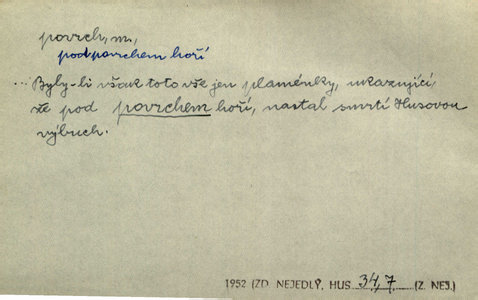 povrch, m.,
pod povrchem hoří
... Byly-li však toto vše jen plaménky, ukazující,
že pod povrchem hoří, nastal smrtí Husovou
výbuch.
1952 (ZD. NEJEDLÝ, HUS 34,7 (Z. NEJ.)